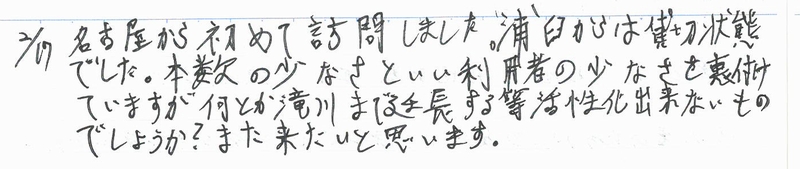 2/17 名古屋から初めて訪問しました。浦臼からは貸切状態
でした。本数の少なさといい利用者の少なさを裏付け
ていますが何とか滝川まで延長する等活性化出来ないもの
でしょうか?また来たいと思います。